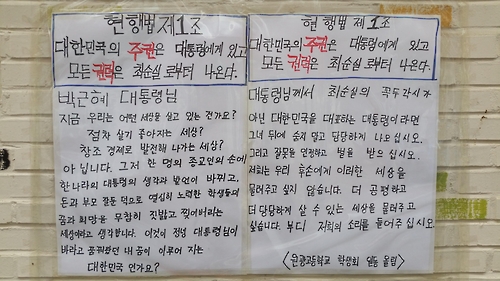 현행법 제1조
대한민국의 주권은 대통령에게 있고
모든 권력은 최순실로부터 나온다.
박근혜 대통령님
지금 우리는 어떤 세상을 살고 있는 건가요?
점차 살기 좋아지는 세상?
창조 경제로 발전해 나가는 세상?
아닙니다. 그저 한 명의 종교인의 손에
한 나라의 대통령의 생각과 발언이 바뀌고,
돈과 부모 잘 둔 덕으로 열심히 노력한 학생들의
꿈과 희망을 무참히 짓밟고 찢어버리는
세상이라고 생각합니다. 이것이 정녕 대통령님이
바라고 꿈꿔왔던 내 꿈이 이루어 지는
대한민국 인가요?
현행법 제1조
대한민국의 주권은 대통령에게 있고
모든 권력은 최순실로부터 나온다.
대통령님께서 최순실의 꼭두각시가
아닌 대한민국을 대표하는 대통령이라면
그녀 뒤에 숨지 말고 당당하게 나오십시오.
그리고 잘못을 인정하고 벌을 받으십시오.
저희는 우리 후손에게 이러한 세상을
물려주고 싶지 않습니다. 더 공평하고
더 당당하게 살 수 있는 세상을 물려주고
싶습니다. 부디 저희의 소리를 들어주십시오
<문광고등학교 학생회 일동 올림>